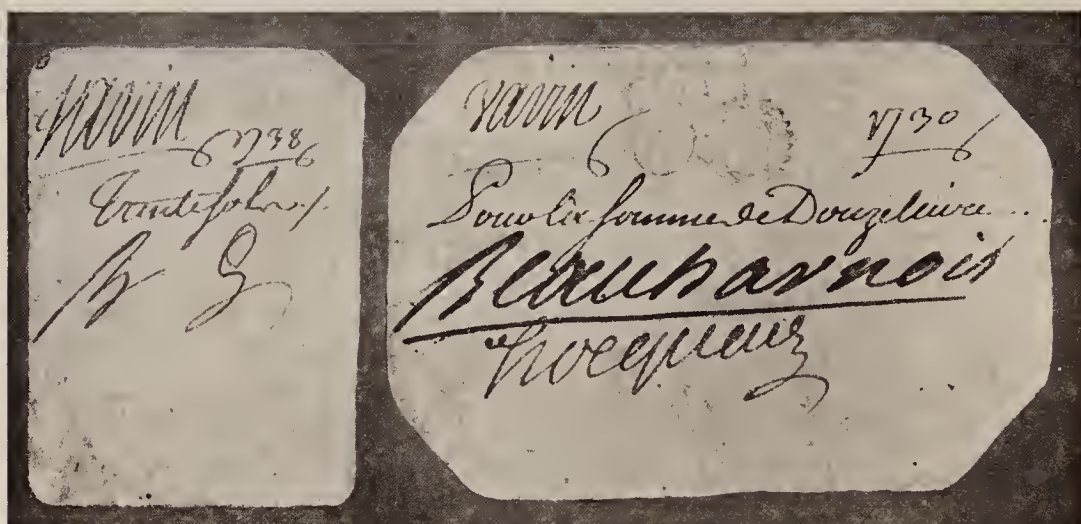 Varin
1738
Trente sols
B H
Varin
1730
Pour la somme de Douze livre
Beauharnois
hocquart